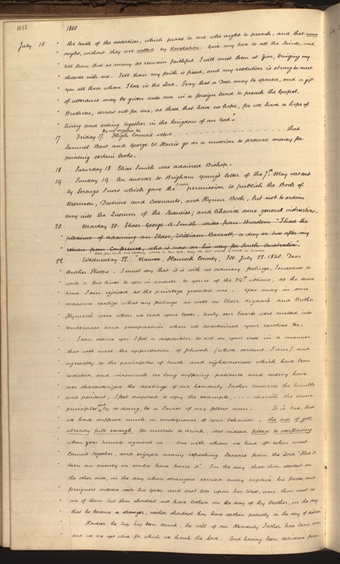 1088 1840
July 18 " the truth of the assertion, which proves to me who ought to preach, and that none
ought, without they are called by Revelation. Give my love to all the Saints, and
tell them that as many as remain faithful I will meet them at Zion, bringing my
sheaves with me. Tell them my faith is fixed, and my resolution is strong to meet
you all there when I leave the Land. Pray that a door may be opened, and a gift
of utterance may be given unto me in a foreign land to preach the Gospel.
Brethren, mourn not for me, as those that have no hope, for we have a hope of
living and eating together in the kingdom of our God."
17 Friday 17. High Council voted that
Samuel Bent and George W. Harris go on a mission to procure money for
printing certain books.
18 Saturday 18 Elias Smith was ordained Bishop.
19 Sunday 19. An answer to Brigham Young's letter of the 7th May was sent
by Lorenzo Snow which gave the permission to publish the Book of
Mormon, Doctrine and Covenants, and Hymn Book, but not to ordain
any into the Quorum of the Seventies; and likewise some general instruction.
20 Monday 20. Elder George A. Smith writes from Burslem "I had the
pleasure of ordaining an Elder, William Barratt, a day or two after my
return from Conference, who is now on his way for South Australia"
22 Wednesday 22. Nauvoo, Hancock County, Ill. July 22. 1840. Dear
Brother Phelps. I must say that it is with no ordinary feelings, I endeavor to
write a few lines to you in answer to yours of the 29th ultimo, at the same
time I am rejoiced at the privilege granted me. You may in some
measure realize what my feelings, as well as Elder Rigdon's and Brother
Hyrum's were when we read your letter, truly our hearts were melted into
tenderness and compassion when we ascertained your resolves &c.
I can assure you I feel a disposition to act on your case in a manner
that will meet the approbation of Jehovah (whose servant I am) and
agreeably to the principles of truth and righteousness which have been
revealed, and inasmuch as long suffering patience and mercy have
ever characterized the dealings of our heavenly Father towards the humble
and penitent, I feel disposed to copy the example, cherish the same
principles, by so doing, be a Savior of my fellow men. It is true, that
we have suffered much in consequence of your behavior — the cup of gall
already full enough for mortals to drink, was indeed filled to overflowing
when you turned against us. One with whom we had oft taken sweet
Council together, and enjoyed many refreshing seasons from the Lord. "Had it
been an enemy we could have borne it". In the day that thou stoodest on
the other side, in the day when strangers carried away captive his forces, and
foreigners entered into his gates, and cast lots upon Far West, even thou wast as
one of them: but thou shouldest not have looked on the day of thy brother, in the day
that he became a stranger, neither shouldest thou have spoken proudly in the day of distress
However the cup has been drunk, the will of our Heavenly Father has been done
and we are yet alive for which we thank the Lord. And having been delivered from